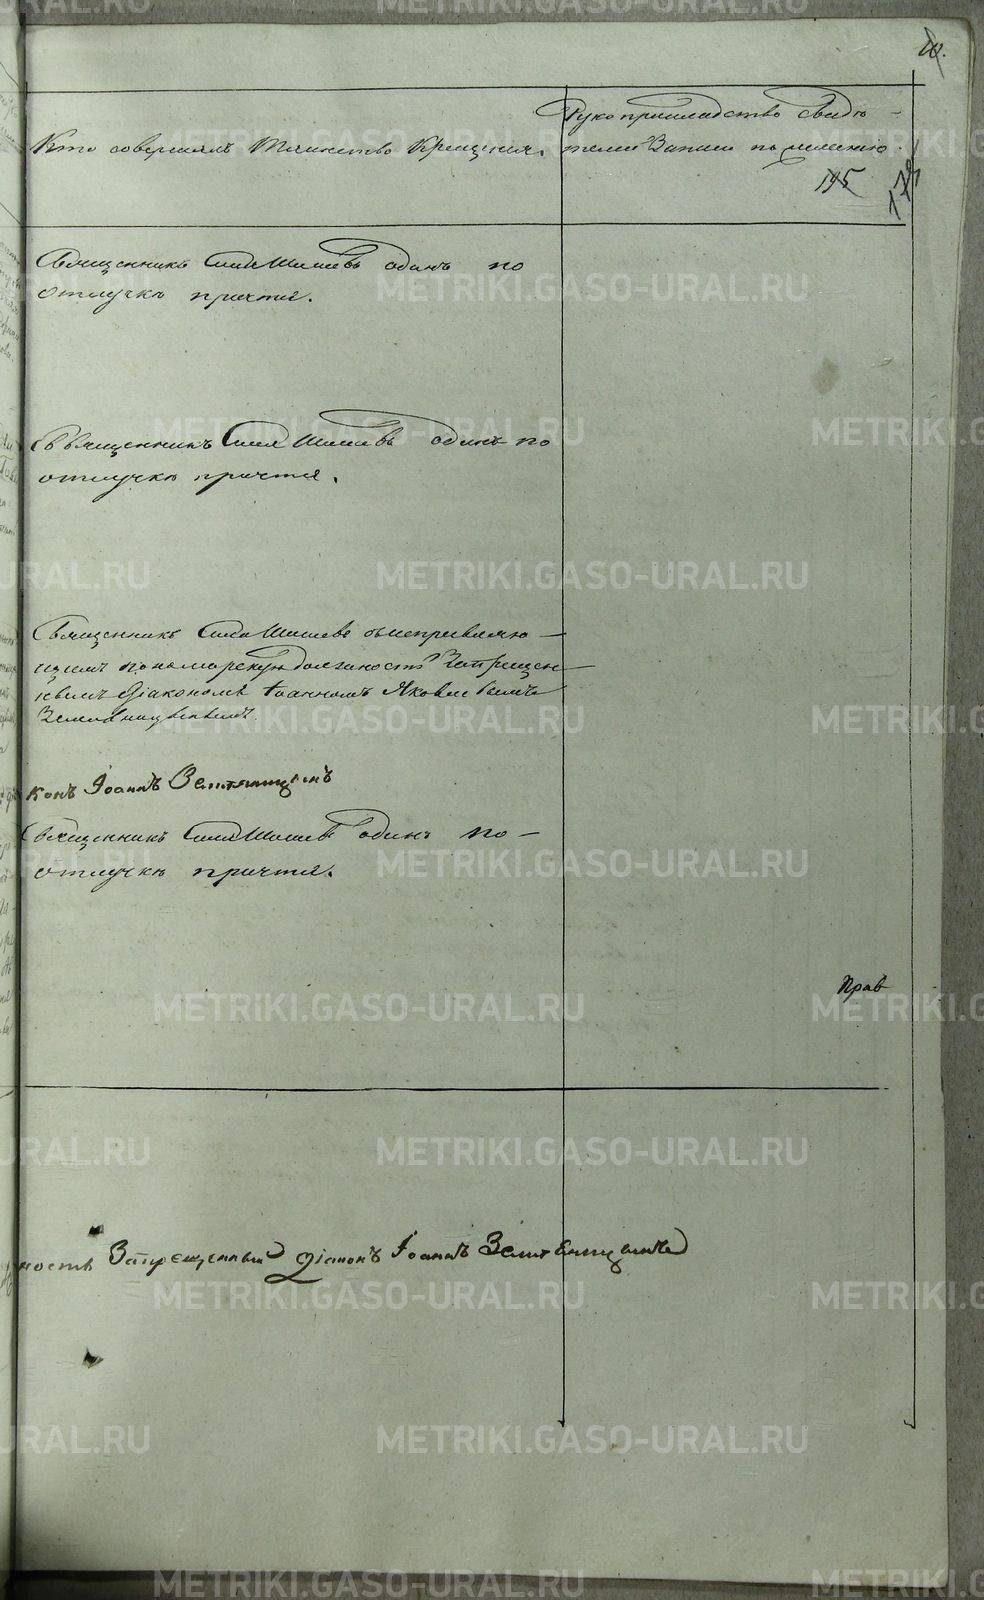 10.
Рукоприкладство свидѣ-
Кто совершалъ Таинство Крещенія.
телей Записи по желанію.
195
173
Священникъ Илія Шишевъ одинъ по
отлучкѣ причта.
Священникъ Илія Шишевъ одинъ по
отлучкѣ причта.
Священникъ Илія Шишевъ съ исправляю-
щимъ пономарскую должность Запрещен-
нымъ Діакономъ Іоанномъ Яковлевымъ
Земляницынымъ.
конъ Іоаннъ Земляницынъ
Священникъ Илія Шишевъ одинъ по-
отлучкѣ причта.
Прав
ность Запрещенный Діаконъ Іоаннъ Земляницынъ
METRIKI.GASO-URAL.RU